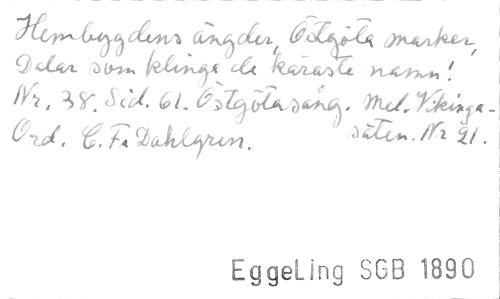 Hembygdens ängder, Östgöta marker,
Dalar som klinga de käraste namn!
Nr. 38. Sid. 61. Östgötasång. Mel. Vikinga-
Ord. C. F. Dahlgren. säten. Nr 21.
EggeLing SGB 1890